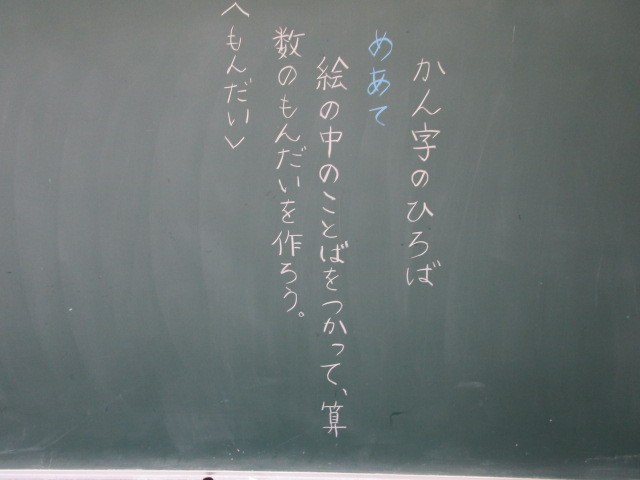 かん字のひろば
めあて
絵の中のことばをつかって、算
数のもんだいを作ろう。
〈もんだい〉